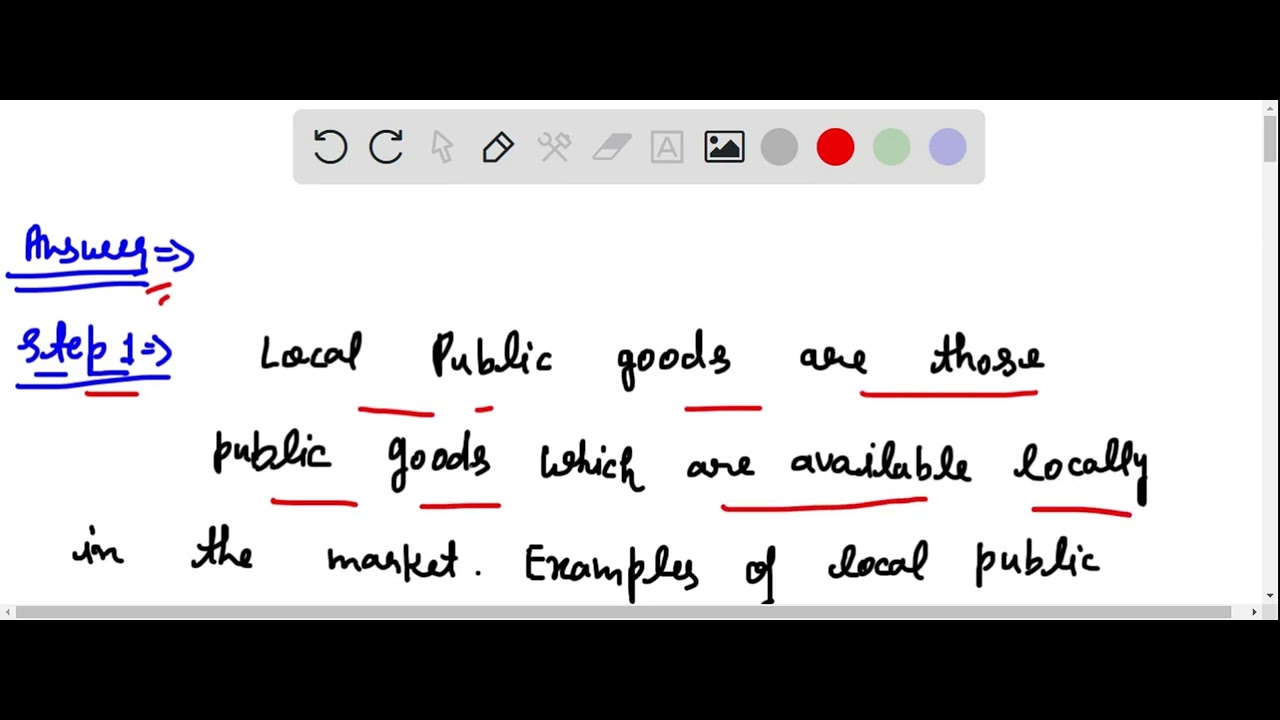 Answer =>
Step 1 => Local Public goods are those
public goods which are available locally
in the market. Examples of local public